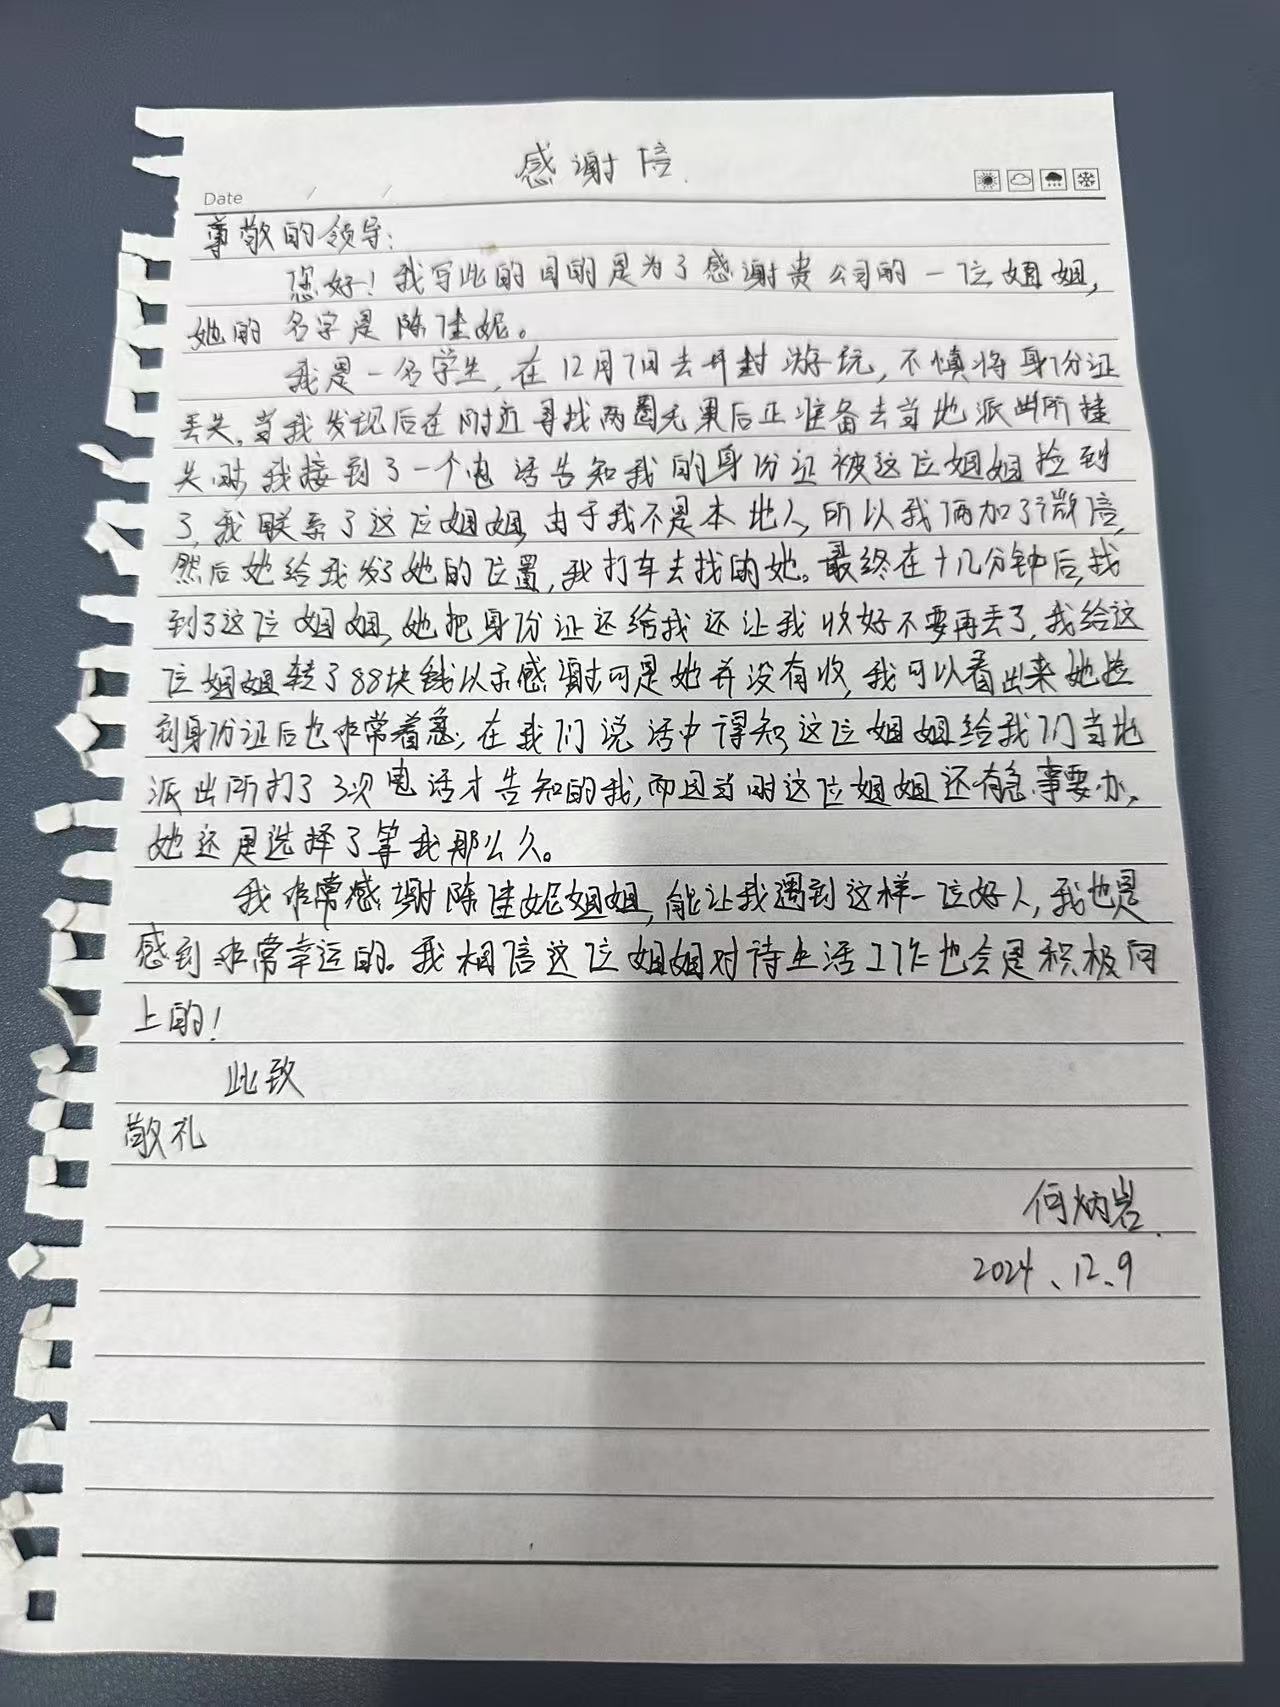 感谢信
Date / /
尊敬的领导:
您好!我写此的目的是为了感谢贵公司的一位姐姐,
她的名字是陈佳妮。
我是一名学生,在12月7日去开封游玩,不慎将身份证
丢失,当我发现后在附近寻找两圈无果后正准备去当地派出所挂
失时,我接到了一个电话告知我的身份证被这位姐姐捡到
了,我联系了这位姐姐,由于我不是本地人,所以我俩加了微信,
然后她给我发了她的位置,我打车去找的她。最终在十几分钟后,找
到了这位姐姐,她把身份证还给我还让我收好不要再丢了,我给这
位姐姐转了88块钱以示感谢可是她并没有收,我可以看出来她捡
到身份证后也非常着急,在我们说话中得知,这位姐姐给我们当地
派出所打了3次电话才告知的我,而且当时这位姐姐还有急事要办,
她还是选择了等我那么久。
我非常感谢陈佳妮姐姐,能让我遇到这样一位好人,我也是
感到非常幸运的。我相信这位姐姐对待生活工作也会是积极向
上的!
此致
敬礼
何炳岩
2024、12、9